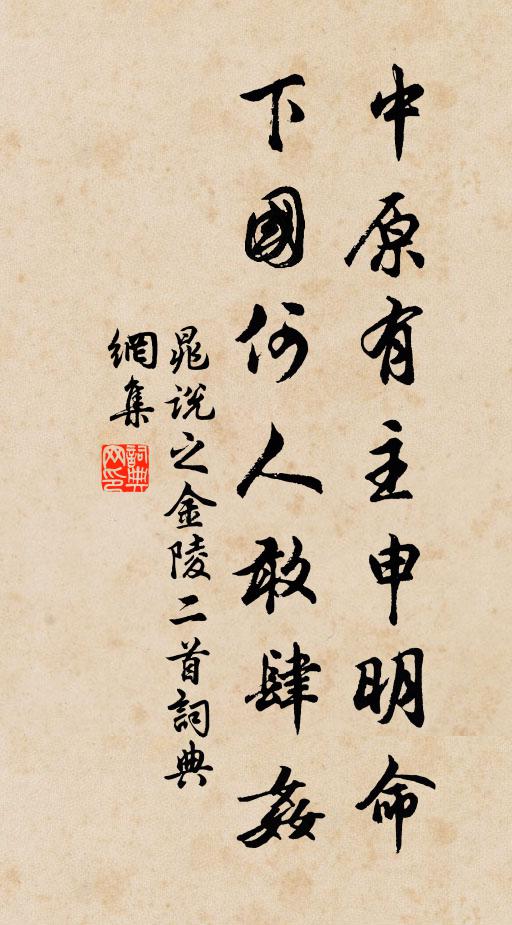 中原有主申明命
下國何人敢肆姦
晁說之金陵二首詞典
網集
詞典网印